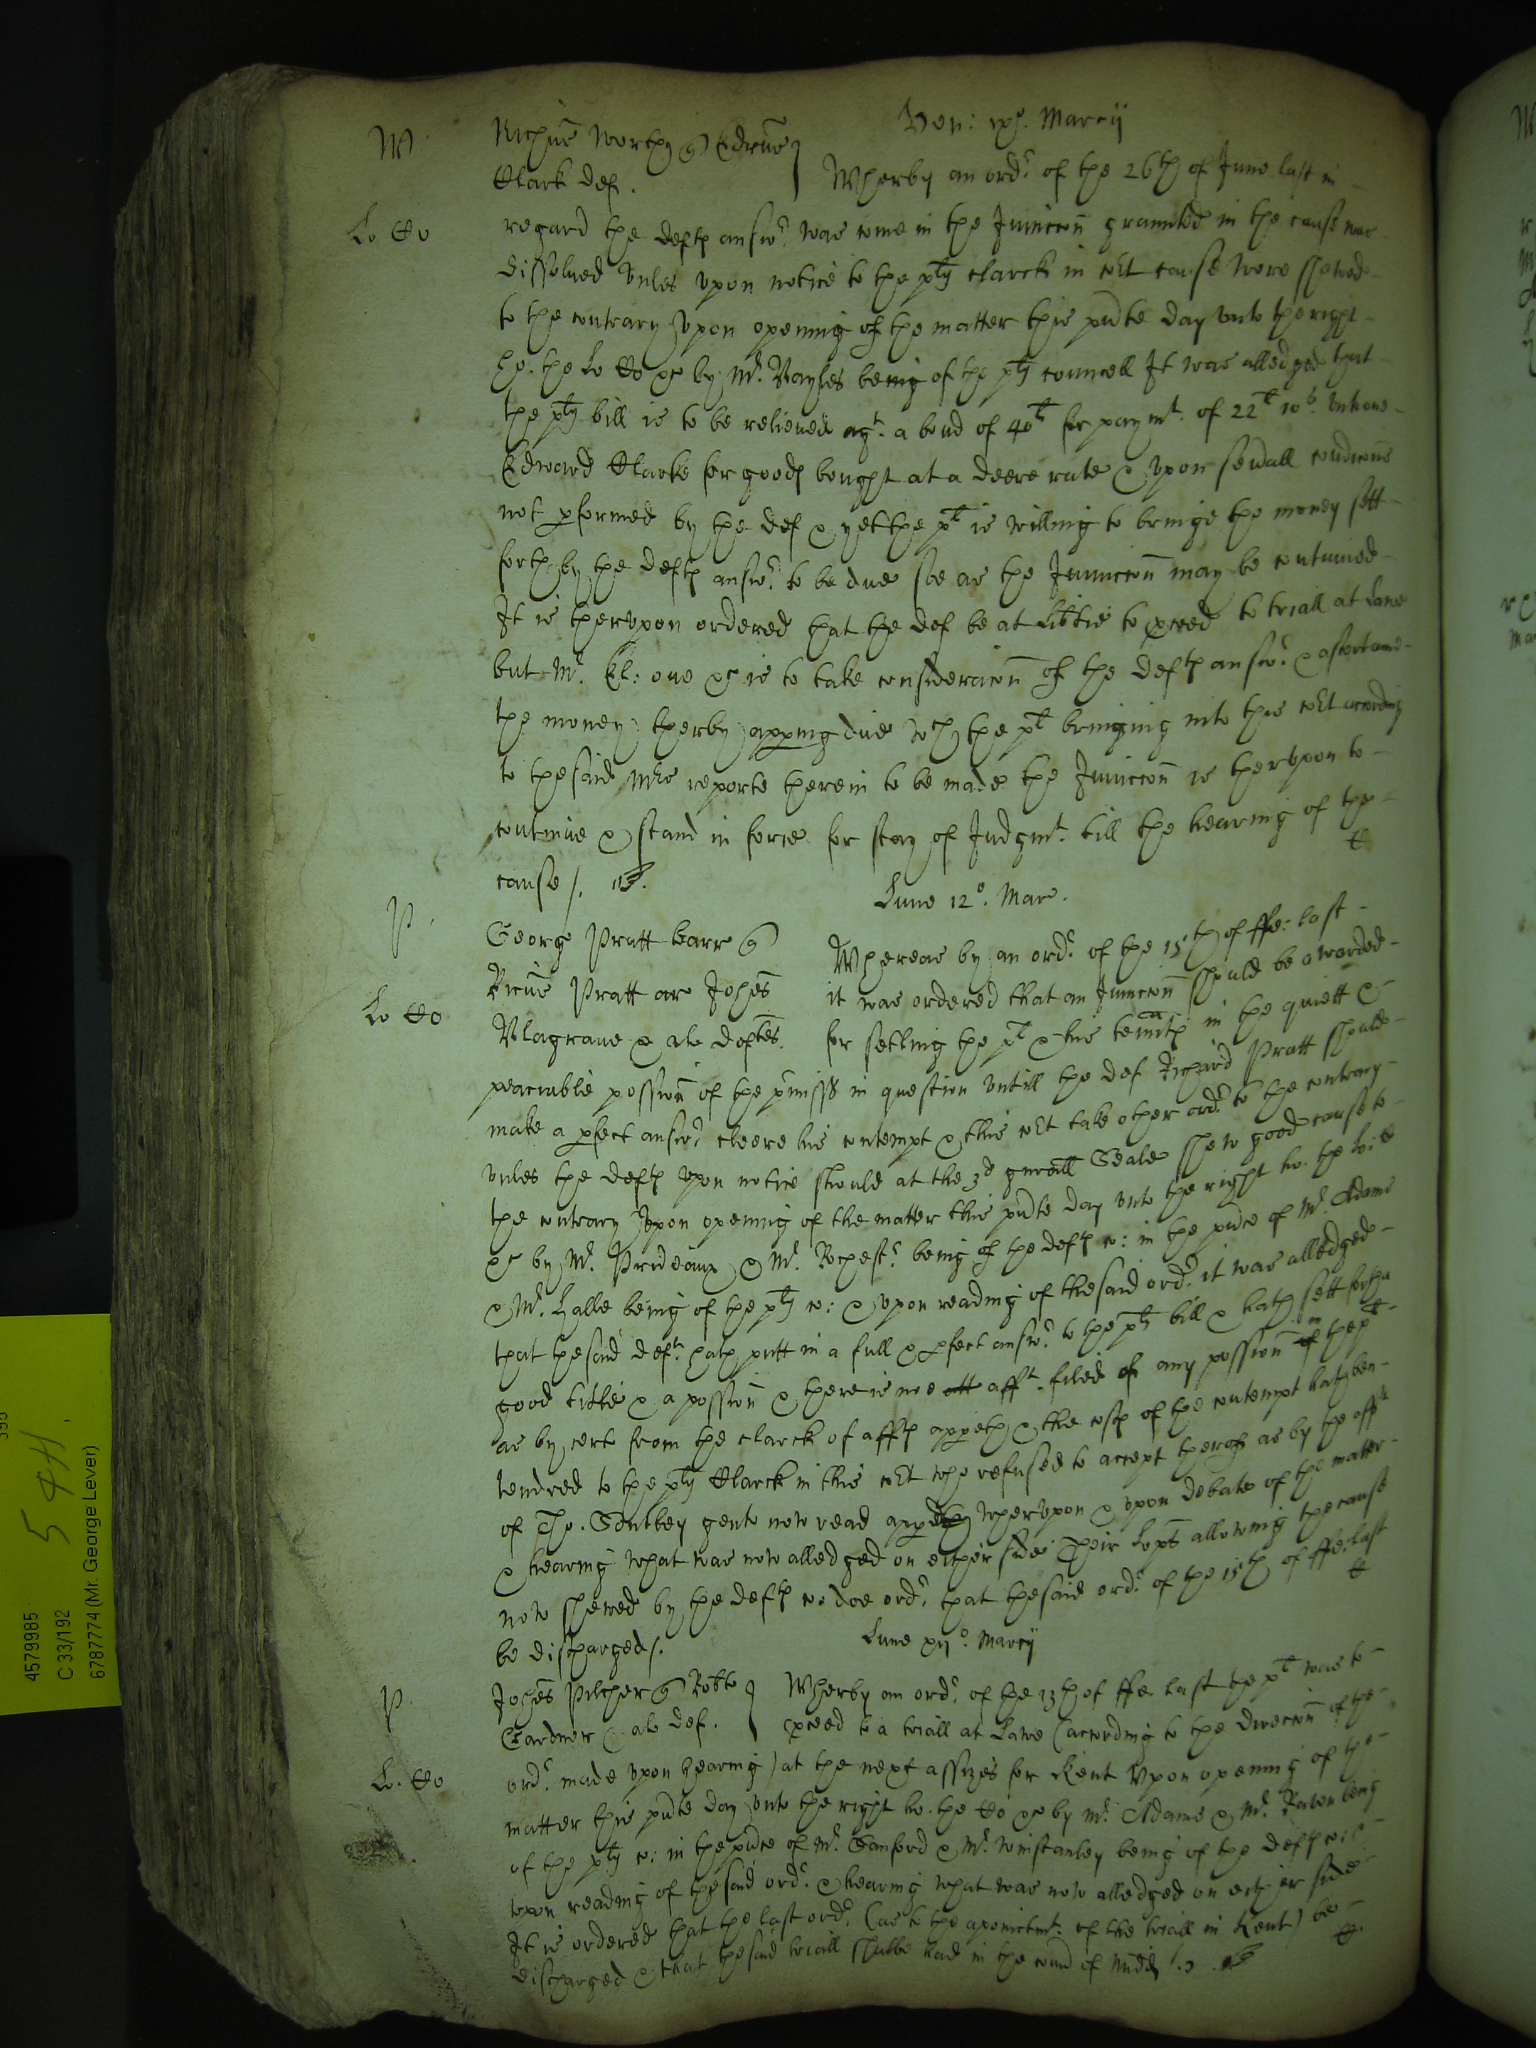 Ven: ix°. Marcij
W
Richus Worthy q Edrus
Clark def.
Wherby an ordr of the 26th of June last in
Lo Co
regard the defts answr was come in the Iniuncon graunted in the cause was
dissolued vnles vpon notice to the plts clarck in Court cause were shewed
to the contrary Vpon opening of the matter this pnte day vnto the right
ho. the Lo Co &c by Mr. being of the plts councell It was alledged that
the plts bill is to be relieued agt. a bond of 40li for paymt. of 22li 10s. vnto one
Edward Clarke for goods bought at a deere rate & vpon seuall condicons
not pformed by the def & yet the plt is willing to bringe the money sett
forth by the defts answr to be due soe as the Iniunccon may be contynued
It is thervpon ordered that the def be at libtie to pceed to triall at Lawe
but Mr. is to take consideracon of the defts answr & ascertaine
the money therby appeing due wch the plt bringing into this Court according
to the said Mrs reporte therein to be made the Iniunccon is thervpon to
continue & stand in force for stay of Judgmt. till the hearing of the
cause /.
P.
Lune 12°. Mar.
George Pratt barr q
Ricus Pratt ar Johes
Blagraue & al defts.
Lo Co
Whereas by an ordr of the 15th of ffe: last
it was ordered that an Iniuncon should be awarded
for setling the plt & his tennts in the quiett &
peaceable possion of the pmisss in question vntill the def Richard Pratt should
make a pfect answr cleere his contempt & this Court take other ordr to the contrary
vnles the defts vpon notice should at the 3d gnrall Seale shew good cause to
the contrary Vpon opening of the matter this pnte day vnto the right ho. the Lo: C
&c by Mr. Prideaux & Mr. Rochestr being of the defts co: in the pnce of Mr. Adams
& Mr. Halle being of the plts co: & vpon reading of the said ordr it was alledged
that the said deft. hath putt in a full & pfect answr to the plts bill & hath sett forth a
good title & a possion & there is noe afft. filed of any possion in the plt
as by cert from the clarck of affts appeth & the costs of the contempt hath ben
tendred to the plts Clarck in this Court who refused to accept therof as by the afft
of Tho. Southbey gent now read appeth Whervpon & vpon debate of the matter
& hearing what was now alledged on either side their Lopps allowing the cause
now shewed by the defts co: doe ordr that the said ordr of the 15th of ffe: last
be discharged /.
Lune xij°. Marcij
P
Johes Pilcher q Robto
Gardner & al def.
Wherby an ordr of the 13th of ffe. last the plt was to
pceed to a triall at Lawe (according to the direccon of the
Lo. Co
ordr made vpon hearing) at the next assizes for Kent Vpon opening of the
matter this pnte day vnto the right ho. the Co &c by Mr. Adams & Mr. being
of the plts co: in the pnce of Mr. Sanford & Mr. Winstanley being of the defts co:
vpon reading of the said ordr & hearing what was now alledged on either side
It is ordered that the last ordr (as to the apointmt. of the triall in Kent) be
discharged & that the said triall shalbe had in the County of Midd
4579985
C 33/192
6787774 (Mr. George Lever)